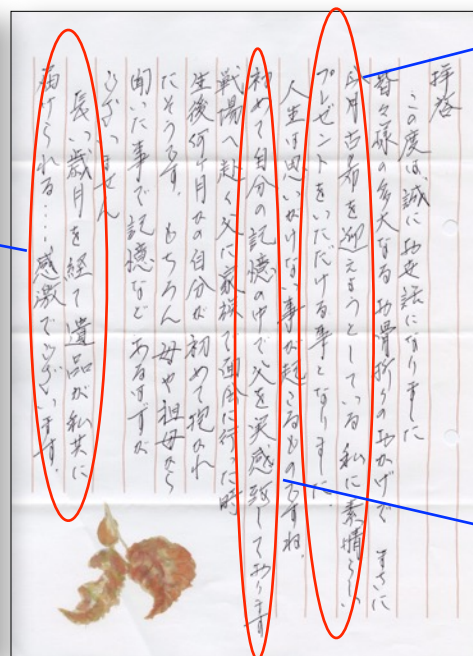 拝啓
この度は、誠にお世話になりました
皆々様の多大なるお骨折りのおかげで まさに
月古希を迎えようとしている 私に素晴らしい
プレゼントをいただける事となりました。
人生は思いがけない事が起こるものですね。
初めて自分の記憶の中で父を実感致しております
戦場へ赴く父に家族で面会に行った時
生後何ヶ月かの自分が初めて抱かれ
たそうです。もちろん母や祖母から
聞いた事で記憶など あるはずが
ございません
長い歳月を経て 遺品が私共に
届けられる…感激でございます。